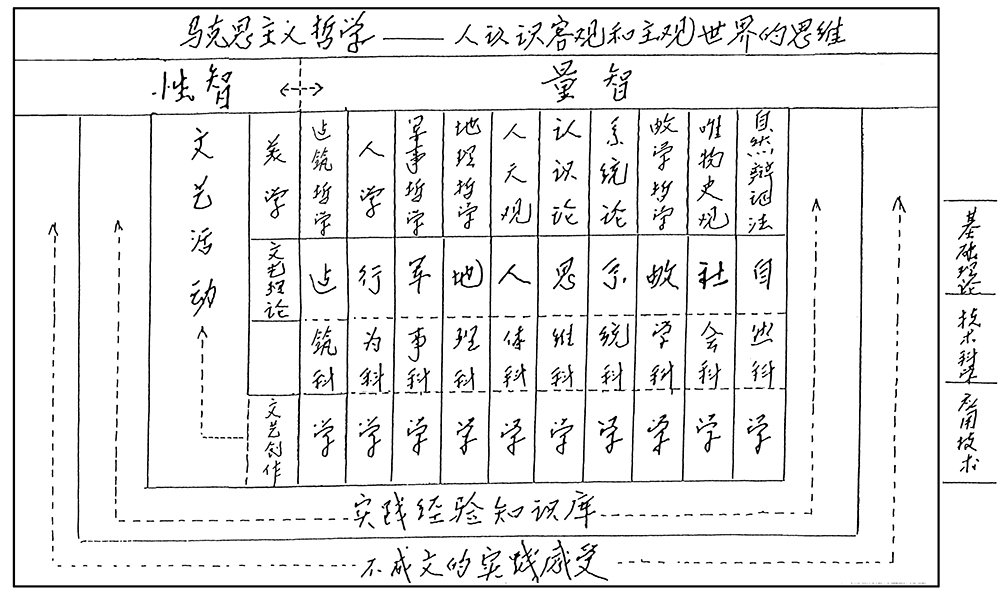 马克思主义哲学——人认识客观和主观世界的思维
性智 ←→ 量智
文艺活动
美学
建筑哲学
人学
军事哲学
地理哲学
人天观
认识论
系统论
数学哲学
唯物史观
自然辩证法
文艺理论
建筑科学
行为科学
军事科学
地理科学
人体科学
思维科学
系统科学
数学科学
社会科学
自然科学
文艺创作
实践经验知识库
不成文的实践感受
基础理论
技术科学
应用技术